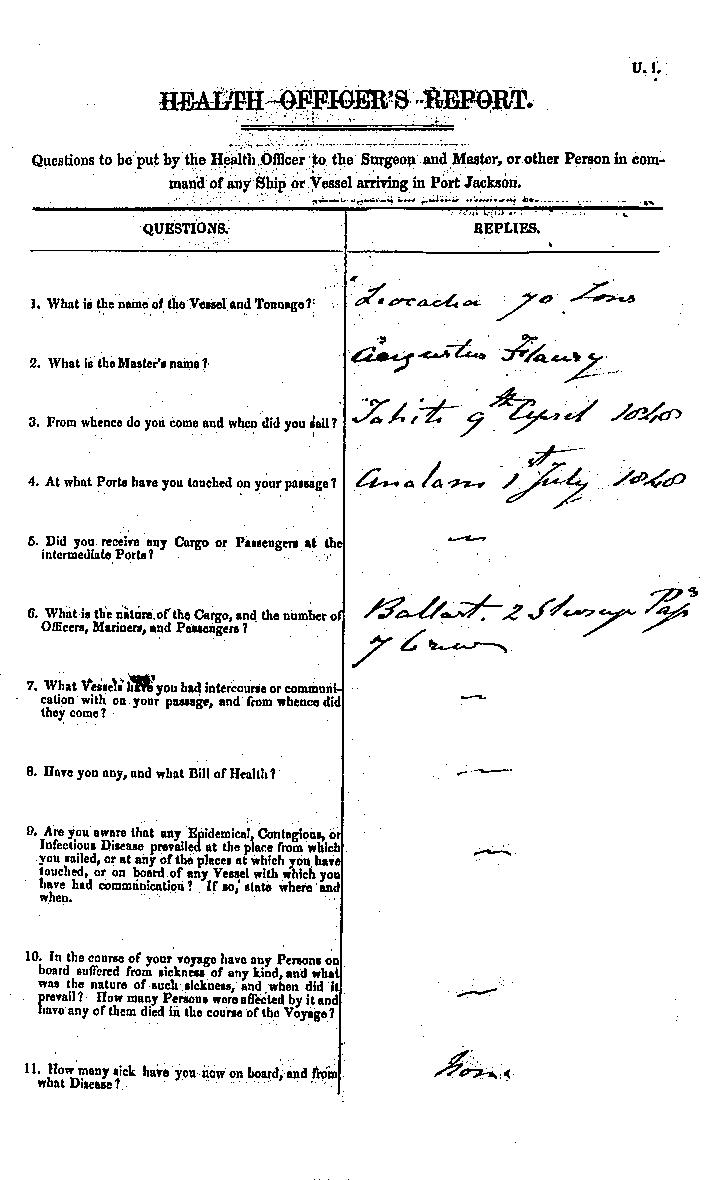 U. 1.
HEALTH OFFICER'S REPORT.
Questions to be put by the Health Officer to the Surgeon and Master, or other Person in com-
mand of any Ship or Vessel arriving in Port Jackson.
QUESTIONS.
REPLIES.
1. What is the name of the Vessel and Tonnage?
Leocadia 70 Tons
2. What is the Master's name?
Augustus Flaury
3. From whence do you come and when did you sail?
Tahiti 9th April 1848
4. At what Ports have you touched on your passage?
1st July 1848
5. Did you receive any Cargo or Passengers at the
intermediate Ports?
—
6. What is the nature of the Cargo, and the number of
Officers, Mariners, and Passengers?
Ballast. 2 Steerage Pass
7 Crew
7. What Vessels have you had intercourse or communi-
cation with on your passage, and from whence did
they come?
—
8. Have you any, and what Bill of Health?
—
9. Are you aware that any Epidemical, Contagious, or
Infectious Disease prevailed at the place from which
you sailed, or at any of the places at which you have
touched, or on board of any Vessel with which you
have had communication? If so, state where and
when.
—
10. In the course of your voyage have any Persons on
board suffered from sickness of any kind, and what
was the nature of such sickness, and when did it
prevail? How many Persons were affected by it and
have any of them died in the course of the Voyage?
—
11. How many sick have you now on board, and from
what Disease?
None